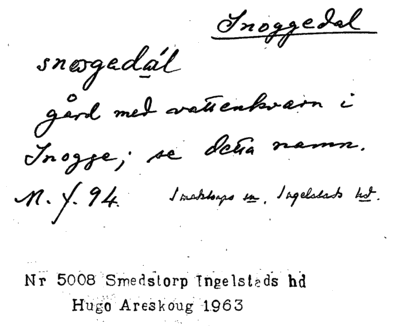 Snoggedal
snogedál
gård med vattenkvarn i
Snogge; se detta namn.
N. f. 94. Smedstorps sn, Ingelstads hd.
Nr 5008 Smedstorp Ingelstads hd
Hugo Areskoug 1963